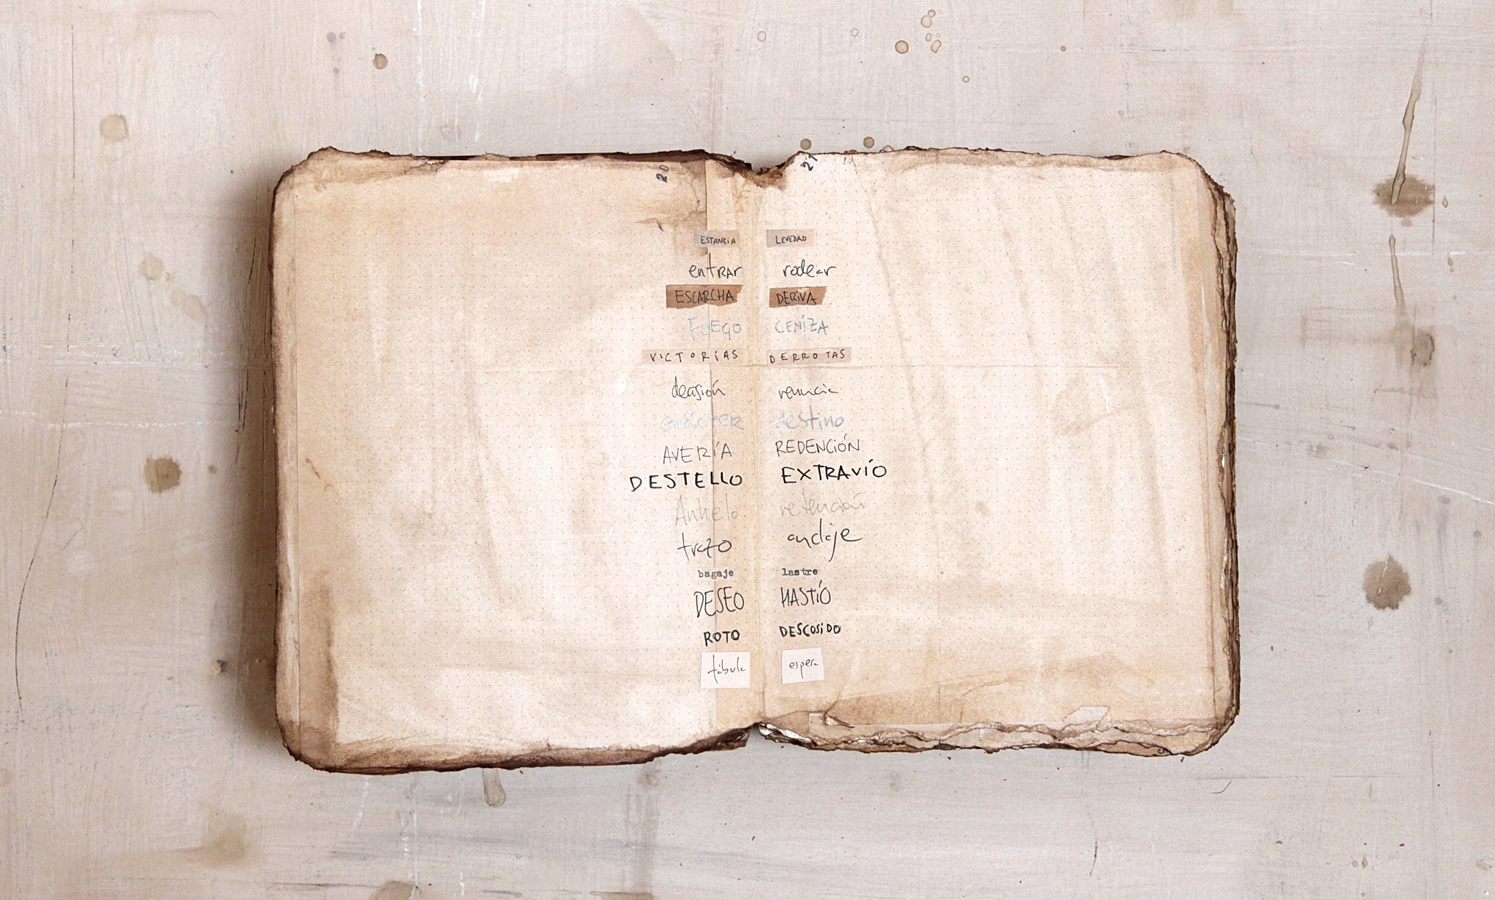 20 21
ESTANCIA LEVEDAD
entrar rodear
ESCARCHA DERIVA
FUEGO CENIZA
VICTORIAS DERROTAS
decisión renuncia
carácter destino
AVERÍA REDENCIÓN
DESTELLO EXTRAVÍO
Anhelo retención
trazo
bagaje lastre
DESEO HASTÍO
ROTO DESCOSIDO
fábula espera